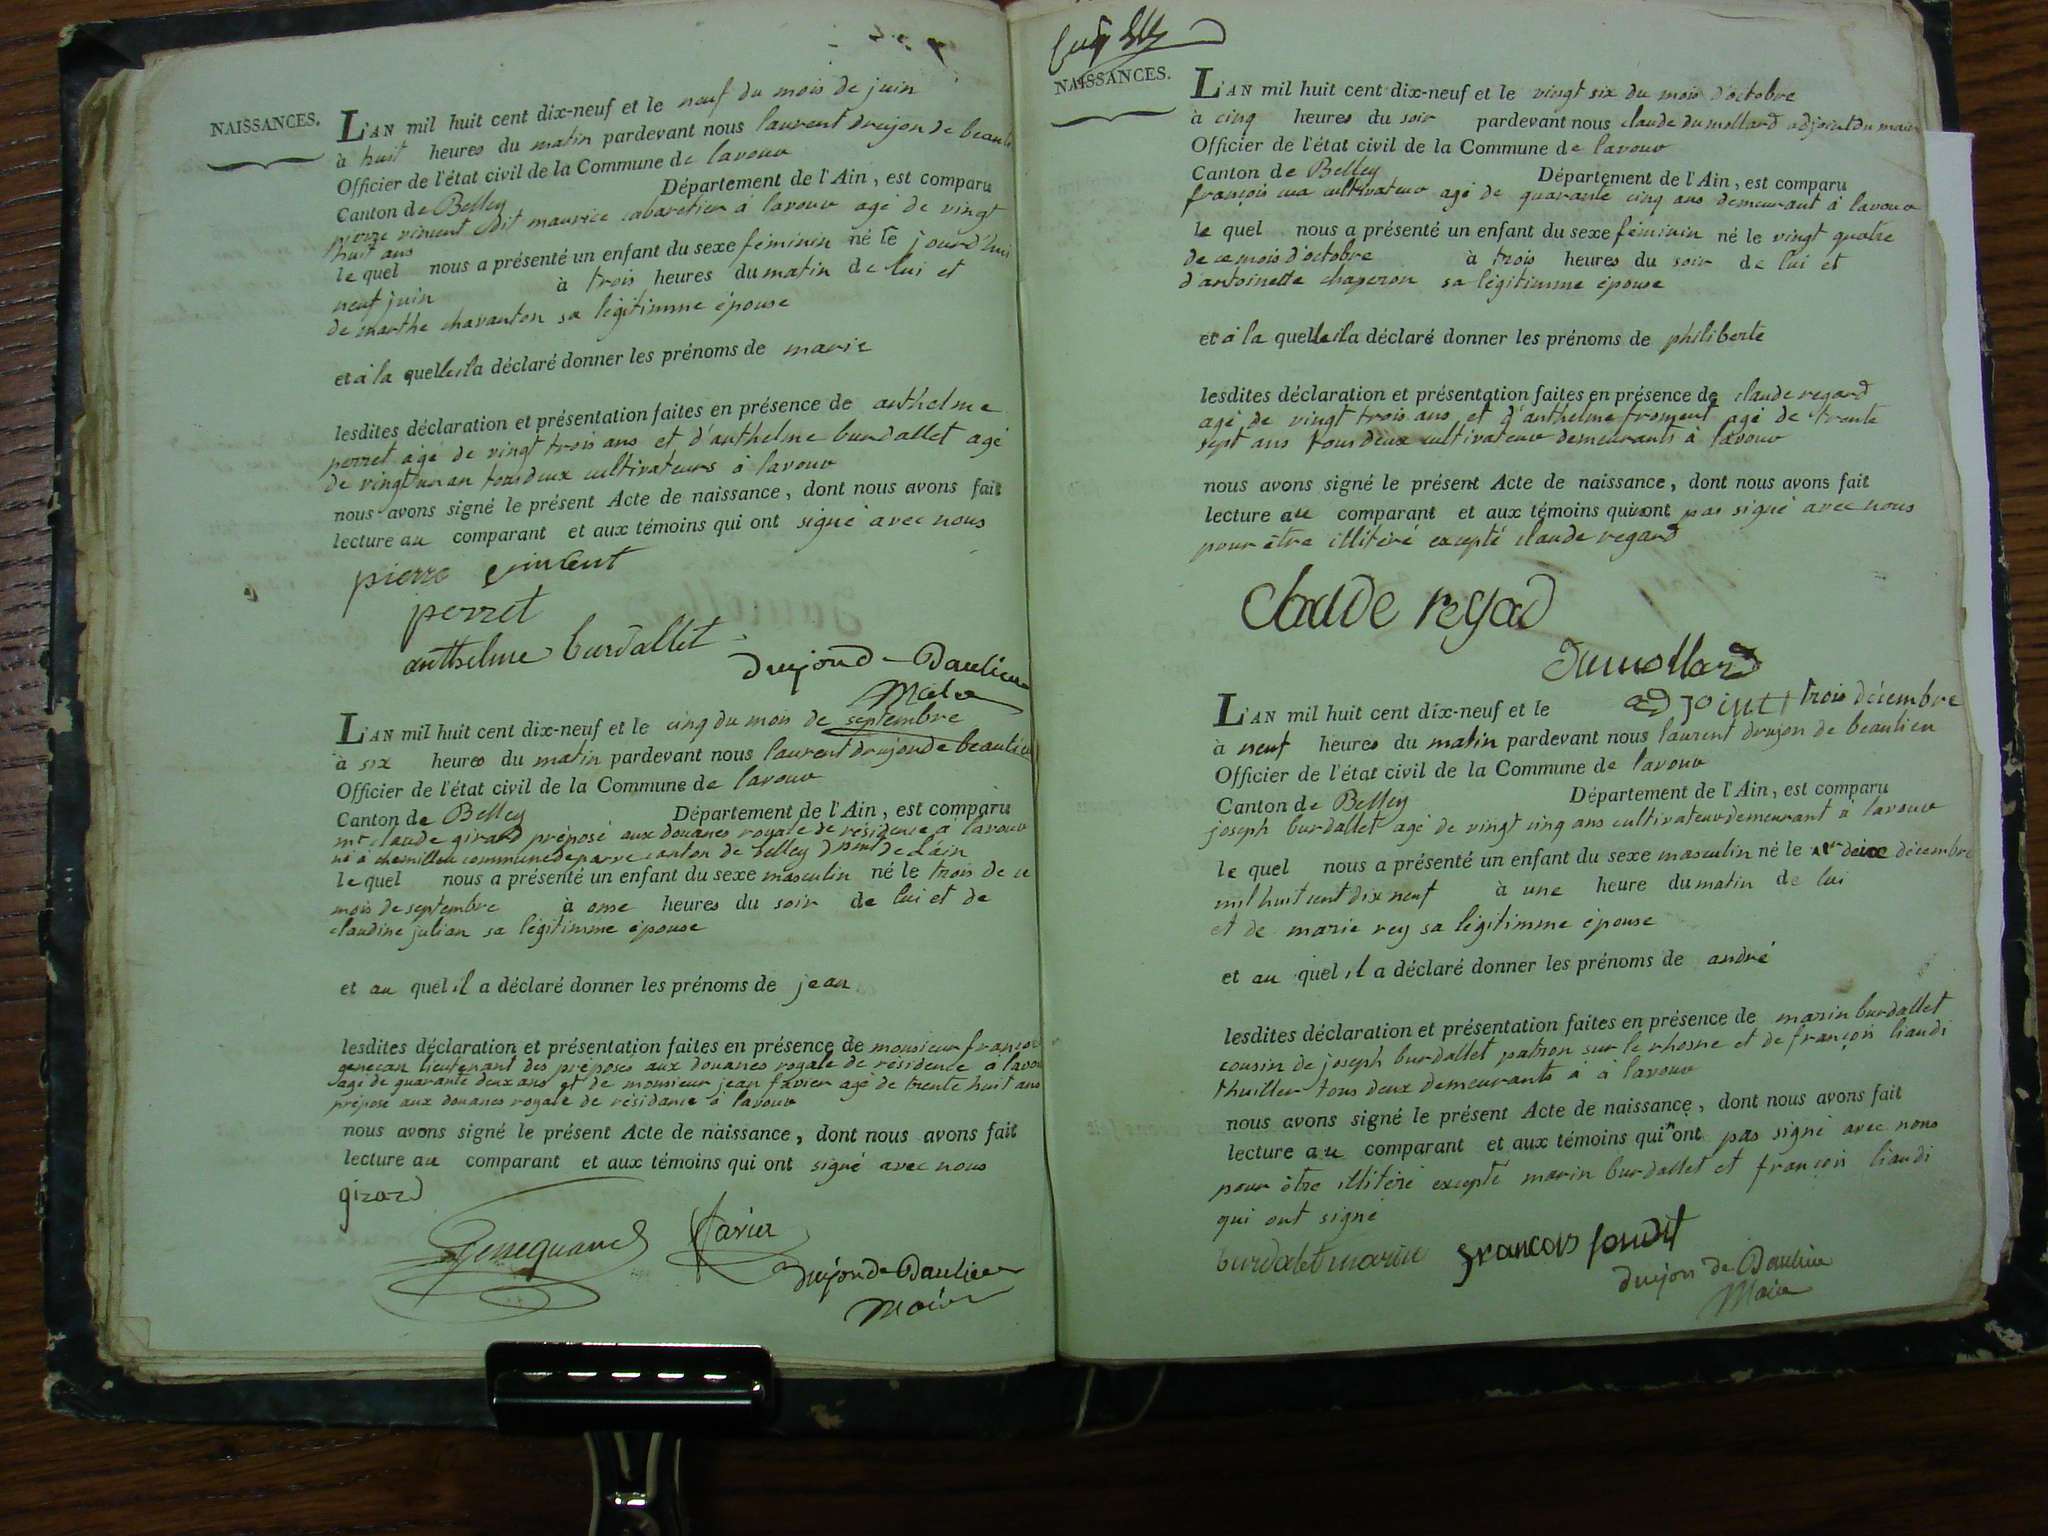 NAISSANCES.
L'AN mil huit cent dix-neuf et le neuf du mois de juin
à huit heures du matin pardevant nous laurent drujon de beaulieu
Officier de l'état civil de la Commune de lavour
Canton de Belley Département de l'Ain, est comparu
pierre vincent dit maurice cabaretier à lavour agé de vingt
huit ans
le quel nous a présenté un enfant du sexe féminin né le jourd'hui
neuf juin à trois heures du matin de lui et
de marthe chavanton sa légitimme épouse
et à la quelle il a déclaré donner les prénoms de marie
lesdites déclaration et présentation faites en présence de anthelme
perret agé de vingt trois ans et d'anthelme burdallet agé
de vingt un an tous deux cultivateurs à lavour
nous avons signé le présent Acte de naissance, dont nous avons fait
lecture au comparant et aux témoins qui ont signé avec nous
pierre vincent
perret
anthelme burdallet
drujon de Baulieu
Maire
L'AN mil huit cent dix-neuf et le cinq du mois de septembre
à six heures du matin pardevant nous laurent drujon de beaulieu
Officier de l'état civil de la Commune de lavour
Canton de Belley Département de l'Ain, est comparu
mr claude girard préposé aux douanes royale de résidence à lavour
né à chemillieu commune de parve canton de belley dpmt de l'ain
le quel nous a présenté un enfant du sexe masculin né le trois de ce
mois de septembre à onse heures du soir de lui et de
claudine julian sa légitimme épouse
et au quel il a déclaré donner les prénoms de jean
lesdites déclaration et présentation faites en présence de monsieur françois
genecan lieutenant des préposés aux douanes royale de résidence à lavour
agé de quarante deux ans et de monsieur jean favier agé de trente huit ans
préposé aux douanes royale de résidance à lavour
nous avons signé le présent Acte de naissance, dont nous avons fait
lecture au comparant et aux témoins qui ont signé avec nous
girard
Genequand favier
drujon de Baulieu
Maire
NAISSANCES.
L'AN mil huit cent dix-neuf et le vingt six du mois d'octobre
à cinq heures du soir pardevant nous claude dumollard adjoint du maire
Officier de l'état civil de la Commune de lavour
Canton de Belley Département de l'Ain, est comparu
françois cua cultivateur agé de quarante cinq ans demeurant à lavour
le quel nous a présenté un enfant du sexe féminin né le vingt quatre
de ce mois d'octobre à trois heures du soir de lui et
d'antoinette chaperon sa légitimme épouse
et à la quelle il a déclaré donner les prénoms de philiberte
lesdites déclaration et présentation faites en présence de claude regard
agé de vingt trois ans et d'anthelme froment agé de trente
sept ans tous deux cultivateur demeurants à lavour
nous avons signé le présent Acte de naissance, dont nous avons fait
lecture au comparant et aux témoins qui n'ont pas signé avec nous
pour être illitéré excepté claude regard
Claude regad
Dumollard
adjoint
L'AN mil huit cent dix-neuf et le trois décembre
à neuf heures du matin pardevant nous laurent drujon de beaulieu
Officier de l'état civil de la Commune de lavour
Canton de Belley Département de l'Ain, est comparu
joseph burdallet agé de vingt cinq ans cultivateur demeurant à lavour
le quel nous a présenté un enfant du sexe masculin né le deux décembre
mil huit cent dix neuf à une heure du matin de lui
et de marie rey sa légitimme épouse
et au quel il a déclaré donner les prénoms de andré
lesdites déclaration et présentation faites en présence de marin burdallet
cousin de joseph burdallet patron sur le rhosne et de françois liaudi
thuillier tous deux demeurants à à lavour
nous avons signé le présent Acte de naissance, dont nous avons fait
lecture au comparant et aux témoins qui n'ont pas signé avec nous
pour être illitéré excepté marin burdallet et françois liaudi
qui ont signé
burdalet marin francois
drujon de Baulieu
Maire